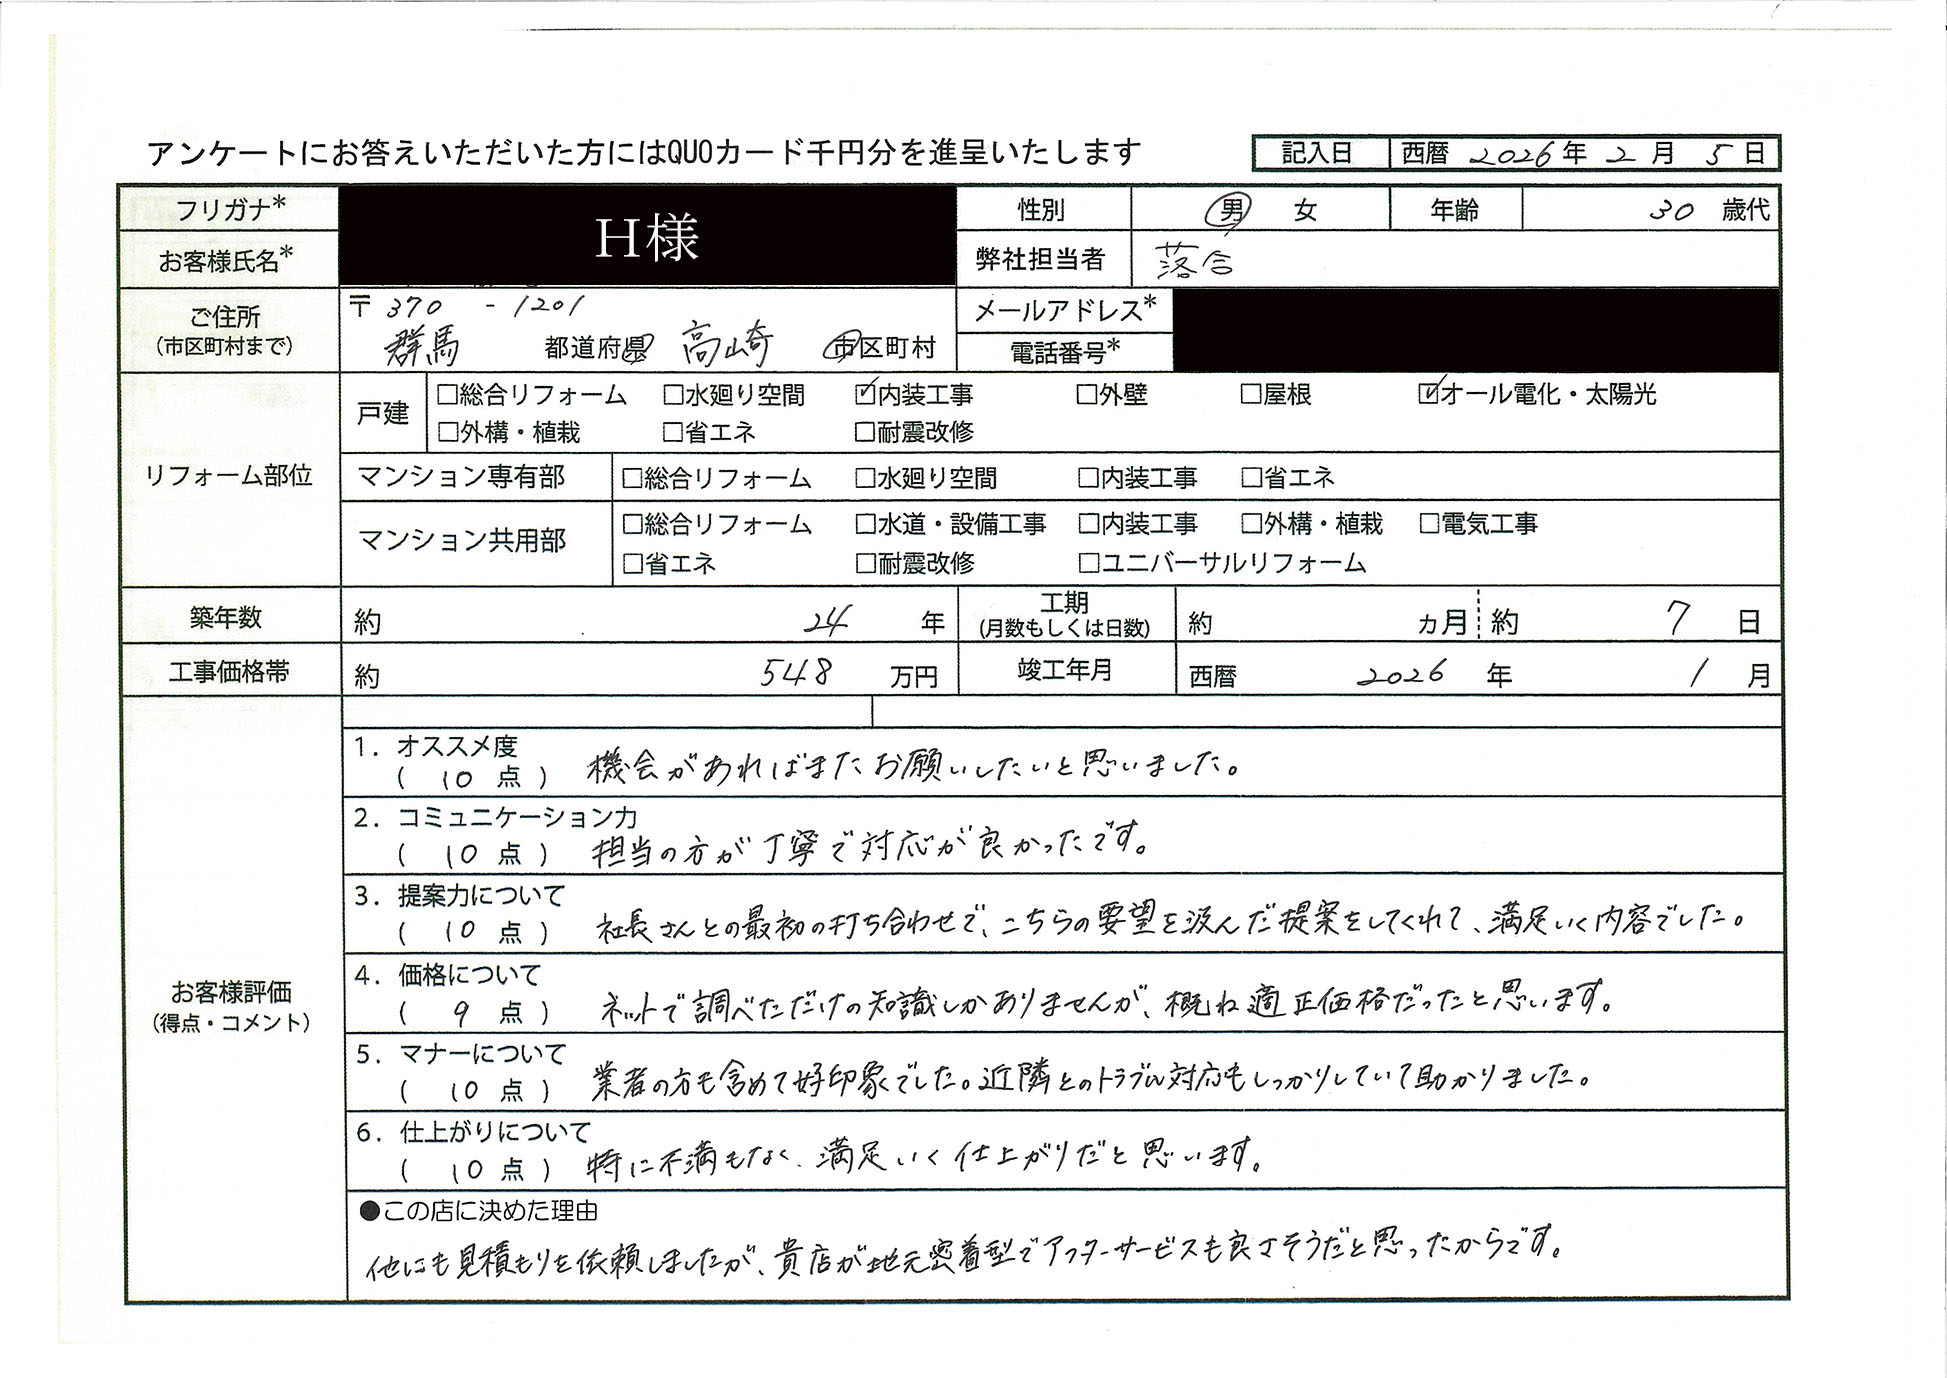 アンケートにお答えいただいた方にはQUOカード千円分を進呈いたします
記入日 西暦 2026年 2月 5日
フリガナ*
お客様氏名*
H様
性別 男 女 年齢 30 歳代
弊社担当者 落合
ご住所
(市区町村まで)
〒370 -1201
群馬 都道府県 高崎 市区町村
メールアドレス*
電話番号*
リフォーム部位
戸建
□総合リフォーム □水廻り空間 ☑内装工事 □外壁 □屋根 ☑オール電化・太陽光
□外構・植栽 □省エネ □耐震改修
マンション専有部 □総合リフォーム □水廻り空間 □内装工事 □省エネ
マンション共用部
□総合リフォーム □水道・設備工事 □内装工事 □外構・植栽 □電気工事
□省エネ □耐震改修 □ユニバーサルリフォーム
築年数 約 24 年
工期
(月数もしくは日数)
約 カ月 約 7 日
工事価格帯 約 548 万円 竣工年月 西暦 2026 年 1 月
お客様評価
(得点・コメント)
1. オススメ度
( 10 点 ) 機会があればまたお願いしたいと思いました。
2. コミュニケーション力
( 10 点 ) 担当の方が丁寧で対応が良かったです。
3. 提案力について
( 10 点 ) 社長さんとの最初の打ち合わせで、こちらの要望を汲んだ提案をしてくれて、満足いく内容でした。
4. 価格について
( 9 点 ) ネットで調べただけの知識しかありませんが、概ね適正価格だったと思います。
5. マナーについて
( 10 点 ) 業者の方も含めて好印象でした。近隣とのトラブル対応もしっかりしていて助かりました。
6. 仕上がりについて
( 10 点 ) 特に不満もなく、満足いく仕上がりだと思います。
●この店に決めた理由
他にも見積もりを依頼しましたが、貴店が地元密着型でアフターサービスも良さそうだと思ったからです。